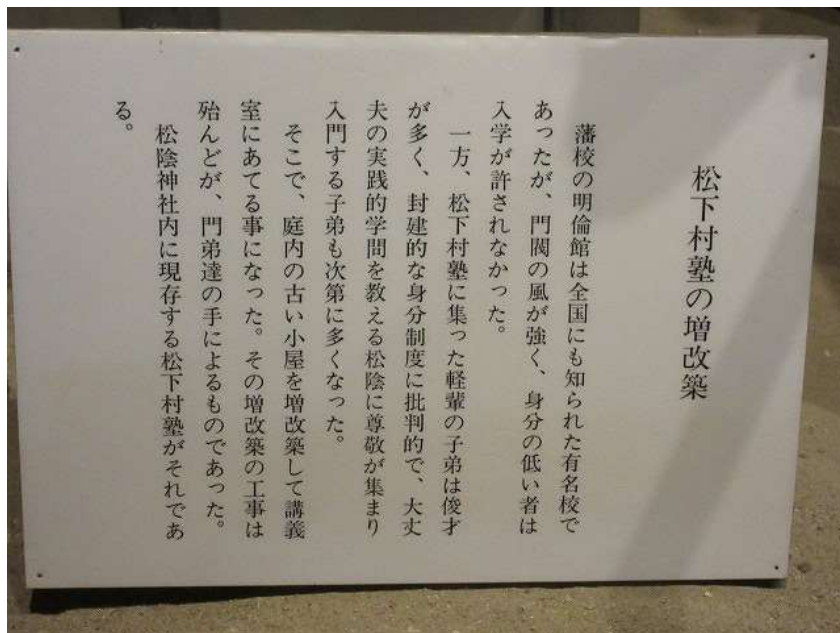 松下村塾の増改築
藩校の明倫館は全国にも知られた有名校で
あったが、門閥の風が強く、身分の低い者は
入学が許されなかった。
一方、松下村塾に集った軽輩の子弟は俊才
が多く、封建的な身分制度に批判的で、大丈
夫の実践的学問を教える松陰に尊敬が集まり
入門する子弟も次第に多くなった。
そこで、庭内の古い小屋を増改築して講義
室にあてる事になった。その増改築の工事は
殆んどが、門弟達の手によるものであった。
松陰神社内に現存する松下村塾がそれであ
る。